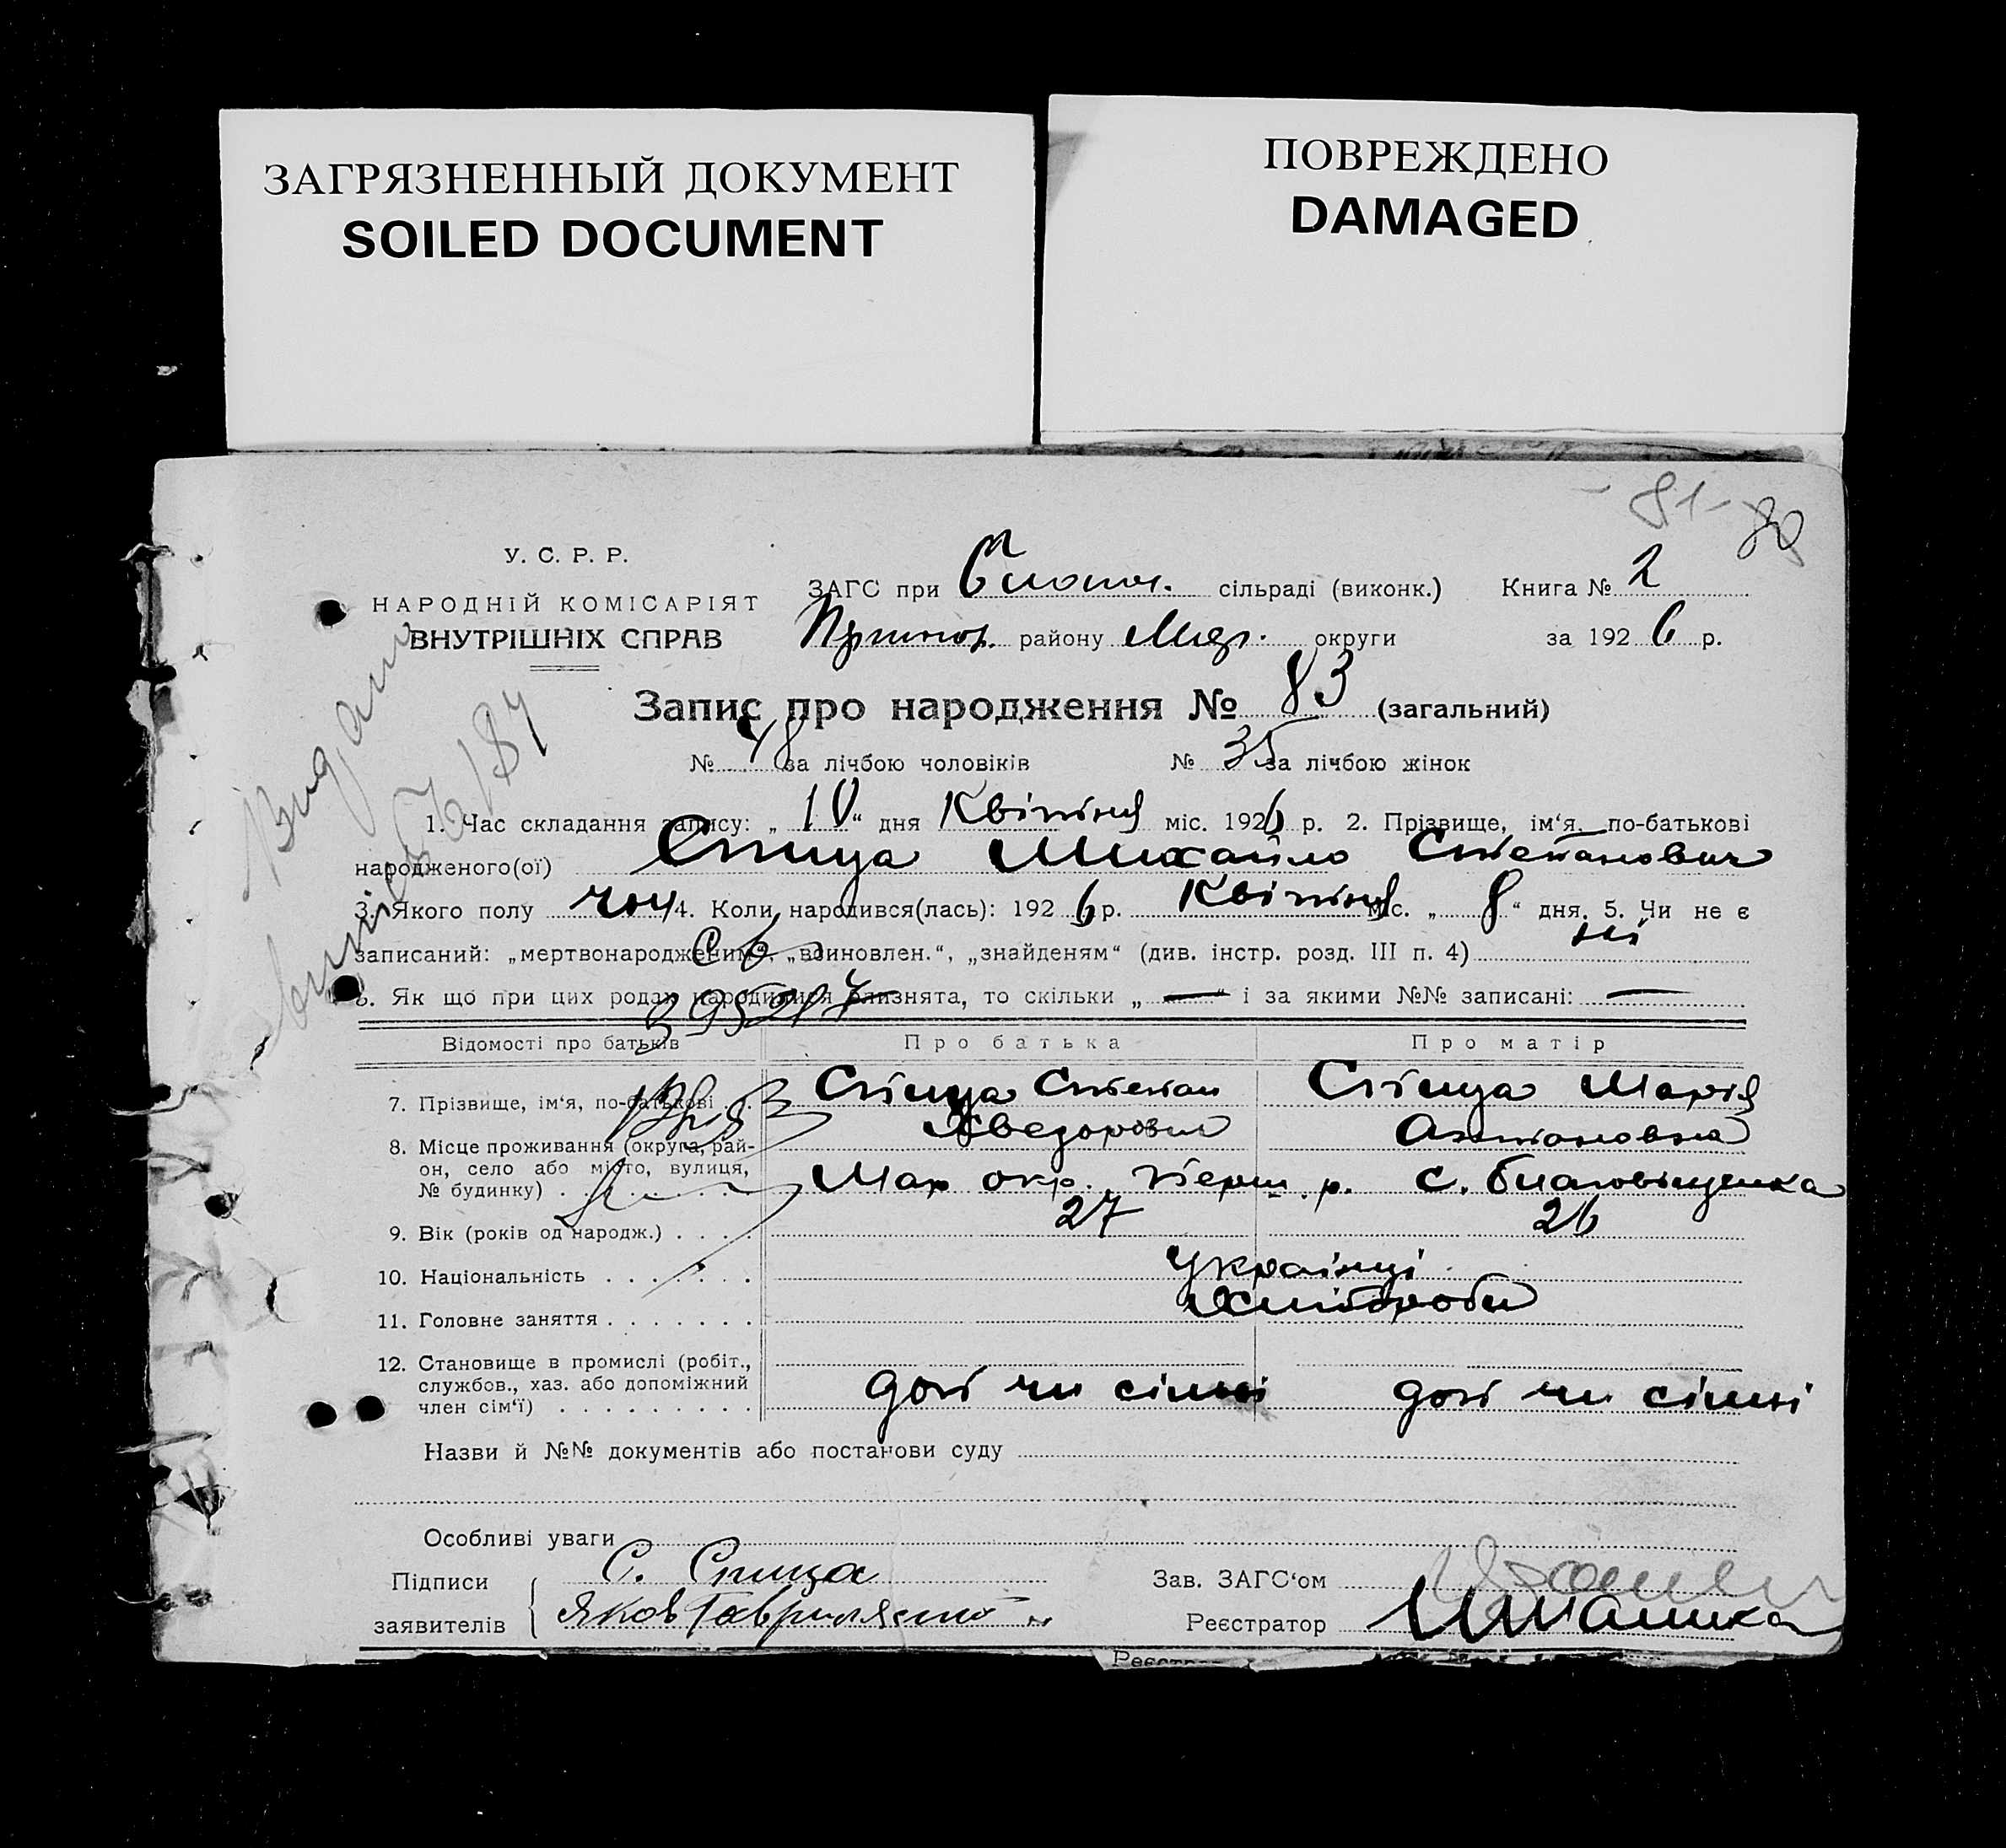 ЗАГРЯЗНЕННЫЙ ДОКУМЕНТ
SOILED DOCUMENT
ПОВРЕЖДЕНО
DAMAGED
- 81 -
80
У. С. Р. Р.
НАРОДНІЙ КОМІСАРІЯТ
ВНУТРІШНІХ СПРАВ
ЗАГС при сільраді (виконк.) Книга № 2
району округи за 192 6 р.
Запис про народження № 83 (загальний)
№ 48 за лічбою чоловіків № 35 за лічбою жінок
1. Час складання запису: „ 10 “ дня Квітня міс. 192 6 р. 2. Прізвище, ім‘я, по-батькові
народженого(ої) Спица Михайло Степанович
3. Якого полу чол 4. Коли народився(лась): 192 6 р. Квітня міс. „ 8 “ дня. 5. Чи не є
записаний: „мертвонародженим“, „всиновлен.“, „знайденям“ (див. інстр. розд. III п. 4) ні
6. Як що при цих родах народилися близнята, то скільки „ — “ і за якими №№ записані: —
Відомості про батьків Про батька Про матір
7. Прізвище, ім‘я, по-батькові . . Спица Степан Хведорович Спица Марія Антоновна
8. Місце проживання (округа, рай-
он, село або місто, вулиця,
№ будинку) . . . . . . . . . Мар окр. Перш. р. с. Благовіщенка
9. Вік (років од народж.) . . . . 27 26
10. Національність . . . . . . . Українці
11. Головне заняття . . . . . . . Хлібороби
12. Становище в промислі (робіт.,
службов., хаз. або допоміжний
член сім‘ї) . . . . . . . . . .
Назви й №№ документів або постанови суду
Особливі уваги
Підписи С. Спица Зав. ЗАГС‘ом
заявителів Яков Реєстратор